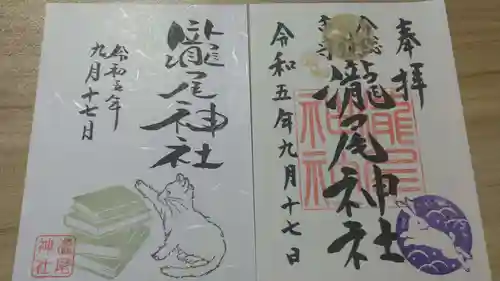 瀧尾神社
令和五年
九月十七日
瀧尾神社
奉拝
瀧尾神社
令和五年九月十七日
瀧尾神社